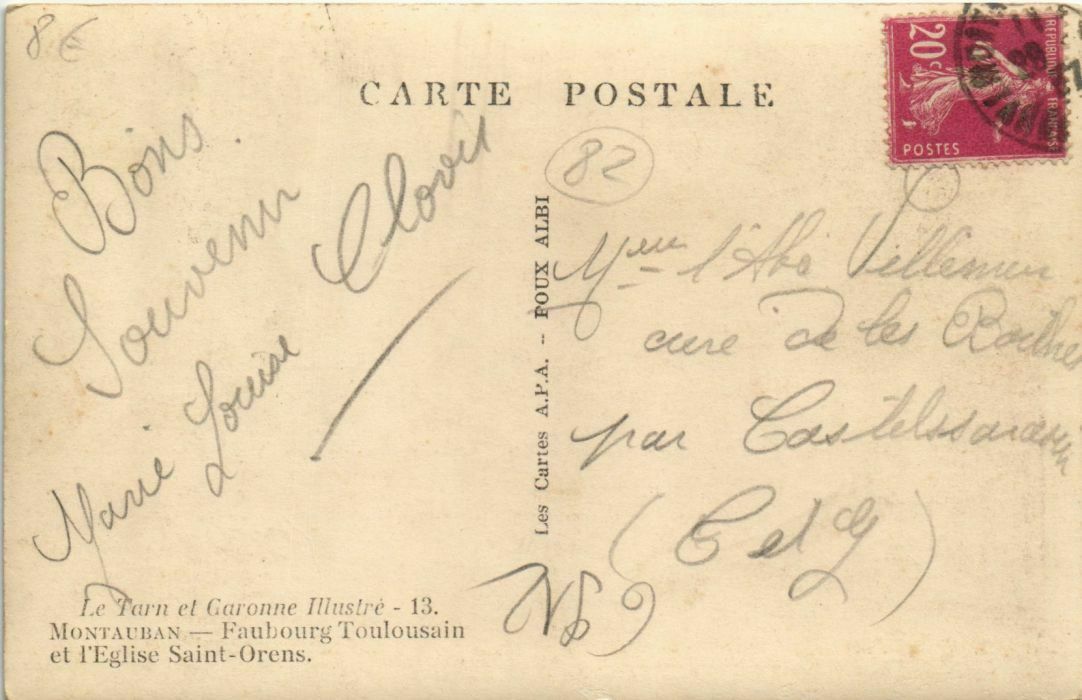 8 €
CARTE POSTALE
REPUBLIQUE FRANÇAISE
20c
POSTES
82
Bons
Souvenir
Marie Louise Clovis
Les Cartes A.P.A. -- POUX ALBI
l'Abé Villemur
curé de les
par Castelssarasin
(T et G)
Le Tarn et Garonne Illustré - 13.
MONTAUBAN — Faubourg Toulousain
et l'Eglise Saint-Orens.